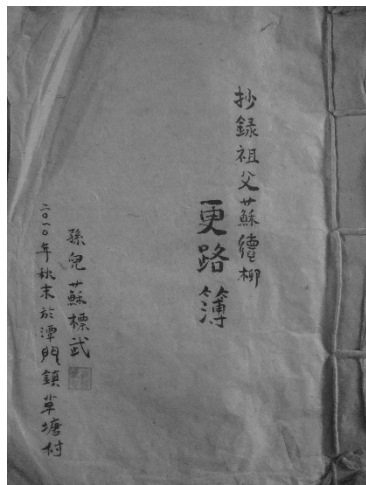 抄録祖父蘇德柳
更路簿
孫兒蘇標武
二〇一〇年秋末於潭門鎮草塘村